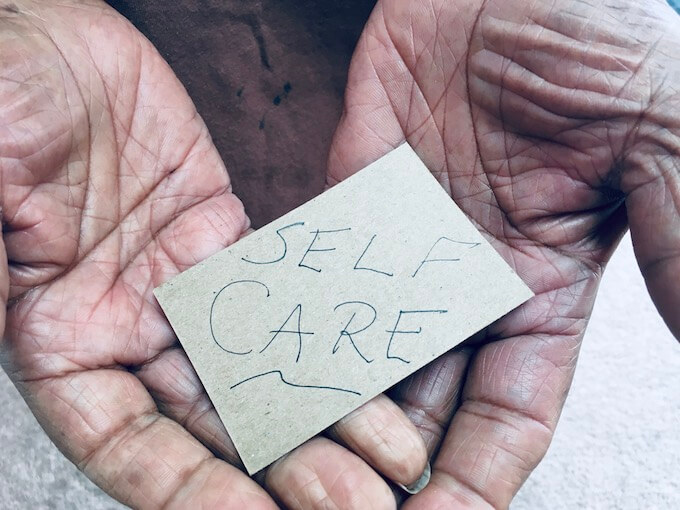 SELF
CARE